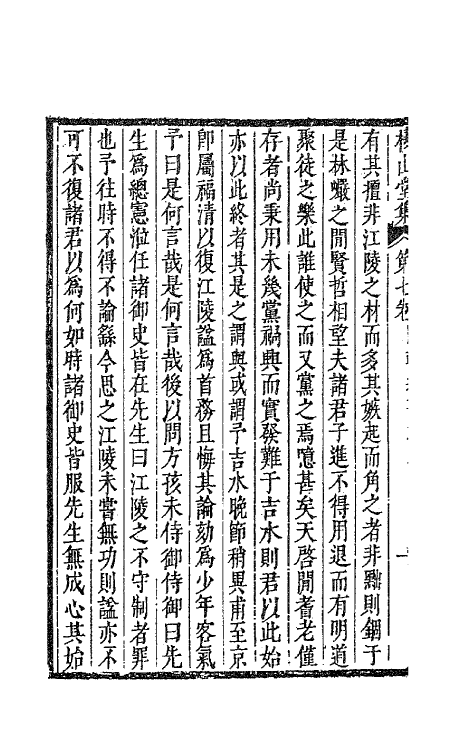 樓山堂集 第七卷
有其擅非江陵之材而多其嫉起而角之者非黜則錮于
是林巘之間賢哲相望夫諸君子進不得用退而有明道
聚徒之樂此誰使之而又黨之焉噫甚矣天啓間耆老僅
存者尚秉用未幾黨禍興而實發難于吉水則君以此始
亦以此終者其是之謂與或謂予吉水晚節稍異甫至京
卽屬福清以復江陵諡爲首務且悔其論劾爲少年客氣
予曰是何言哉是何言哉後以問方孩未侍御侍御曰先
生爲總憲涖任諸御史皆在先生曰江陵之不守制者罪
也予往時不得不論繇今思之江陵未嘗無功則諡亦不
可不復諸君以爲何如時諸御史皆服先生無成心其始